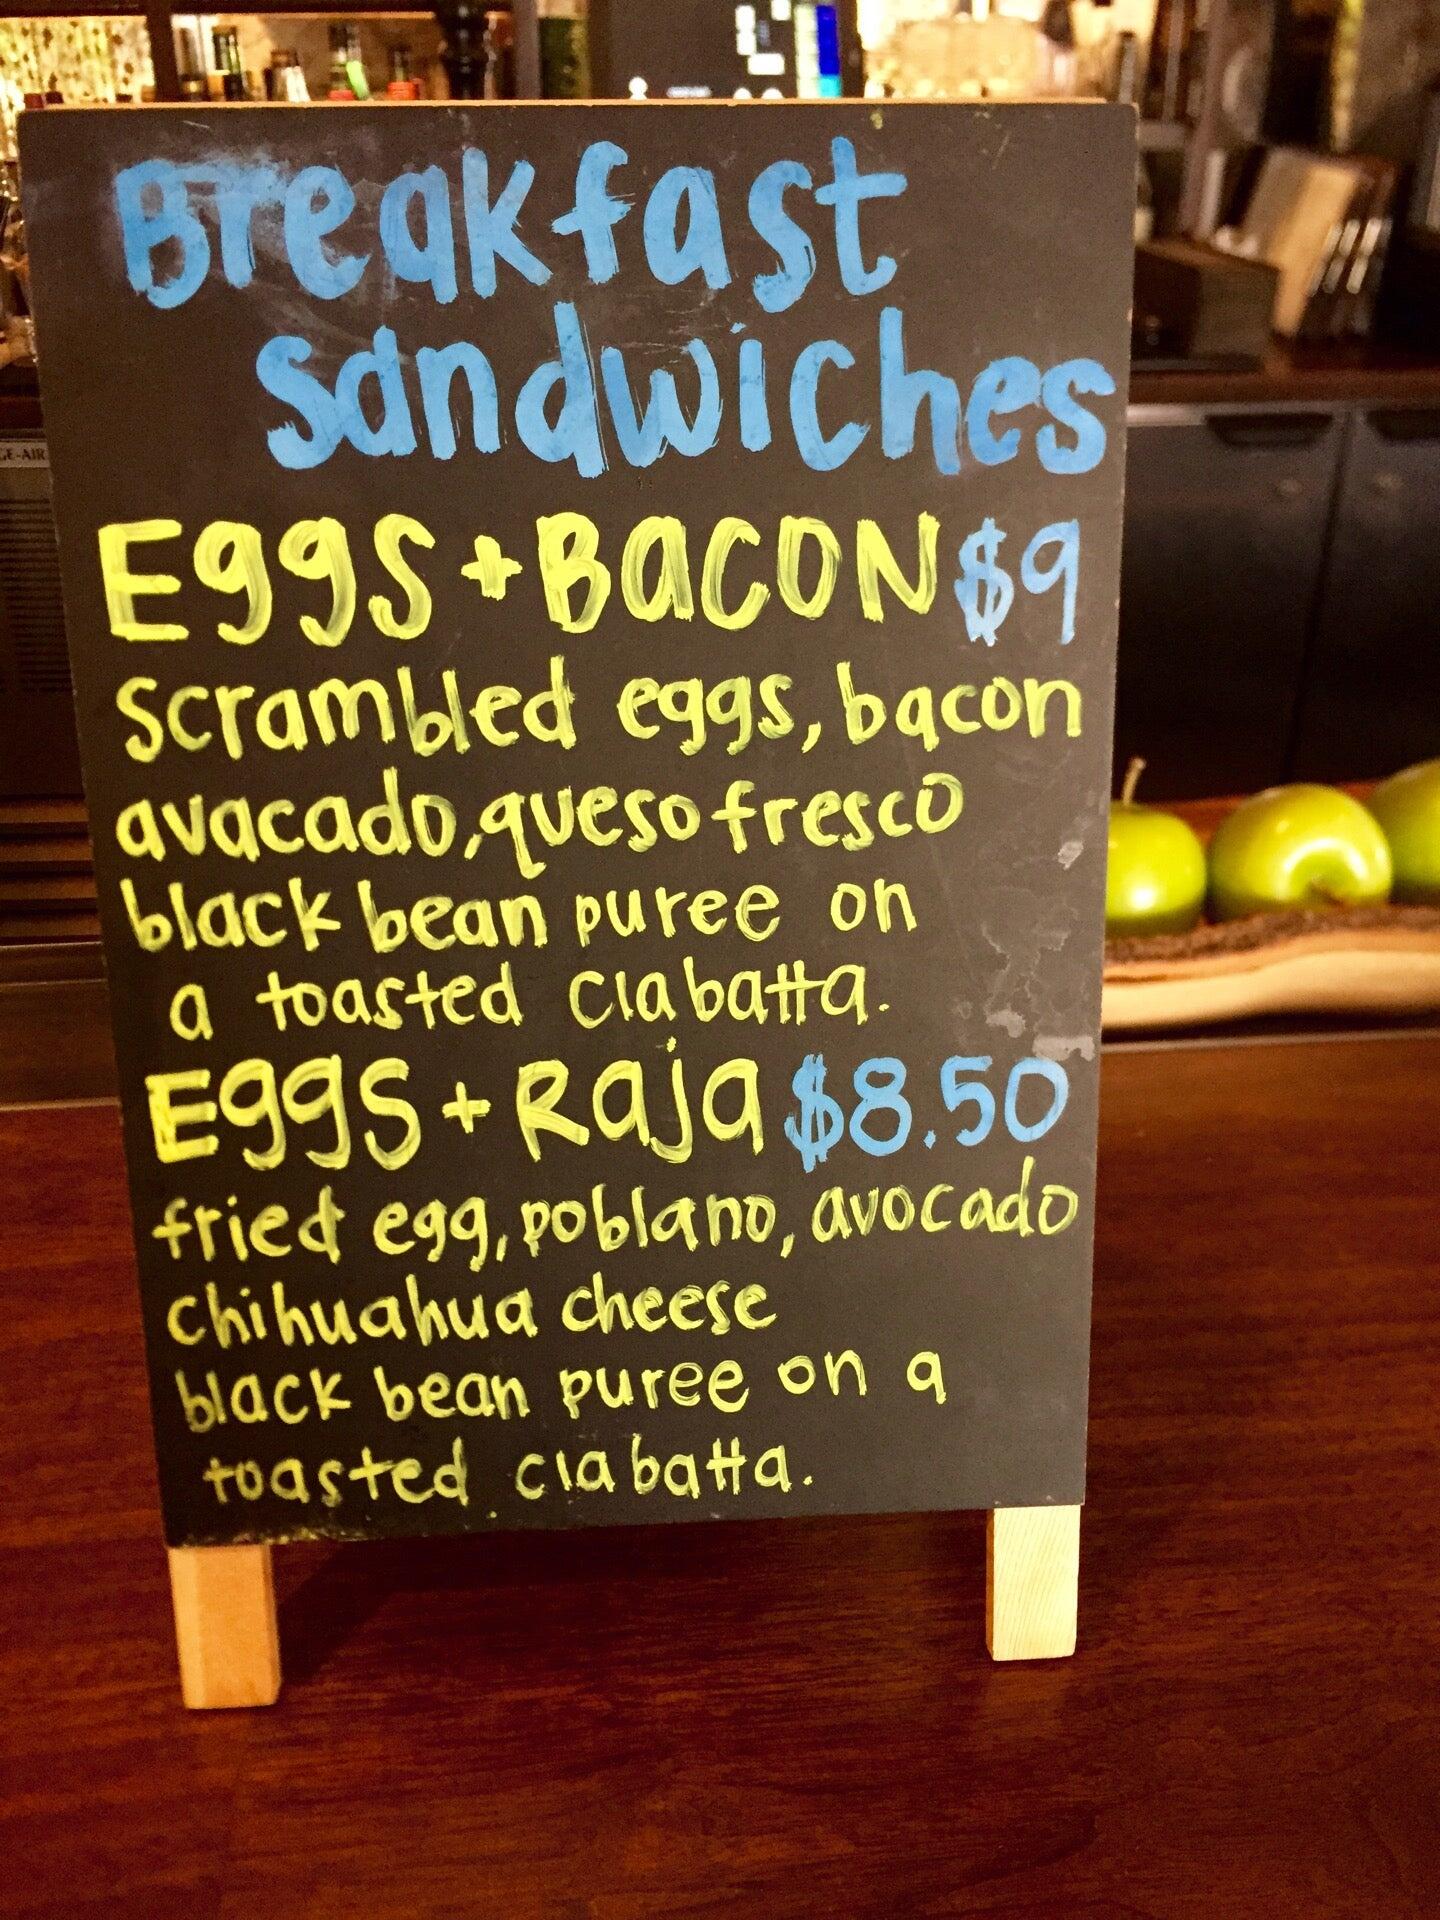 Breakfast
sandwiches
Eggs + BACON $9
scrambled eggs, bacon
avacado, queso fresco
black bean puree on
a toasted ciabatta.
Eggs + Raja $8.50
fried egg, poblano, avocado
chihuahua cheese
black bean puree on a
toasted ciabatta.
GE-AIR